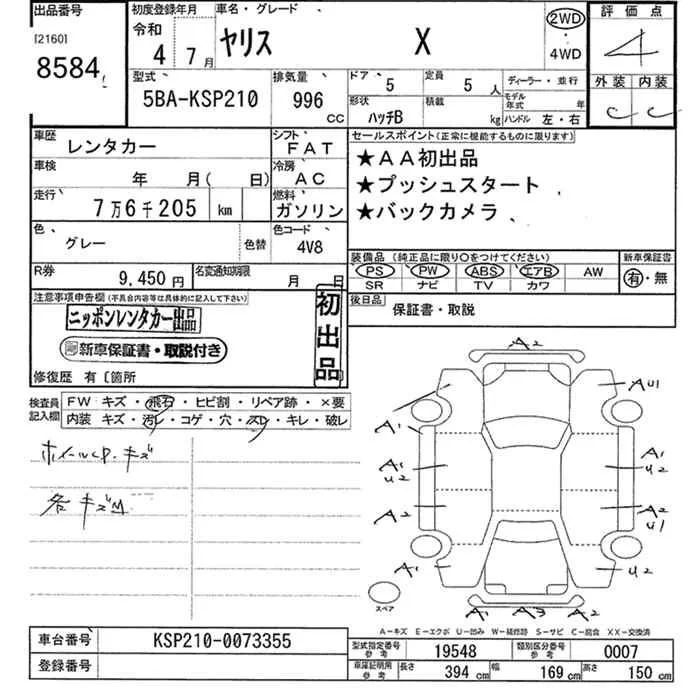 出品番号 初度登録年月 車名・グレード 評価点
[2160] 令和 ヤリス X 2WD
8584 4 7月 ・4WD 4
型式 排気量 ドア 定員 ディーラー・並行 外装 内装
5BA-KSP210 996 CC 5 5人 モデル年式 年 C C
形状 ハッチB 積載 kg ハンドル 左・右
車歴 レンタカー シフト FAT セールスポイント(正常に機能するものに限ります)
車検 年 月( 日) 冷房 AC ★AA初出品
走行 7万6千205 km 燃料 ガソリン ★プッシュスタート
★バックカメラ
色 グレー 色替 色コード 4V8
装備品(純正品に限り○をつけてください) 新車保証書
R券 9,450円 名変通知期限 月 日
PS PW ABS エアB AW 有・無
SR ナビ TV カワ
注意事項申告欄(不具合内容等は具体的に記入して下さい) 後日品 保証書・取説
ニッポンレンタカー出品 初出品
新車保証書・取説付き
修復歴 有〔箇所
検査員記入欄 FW キズ・飛石・ヒビ割・リペア跡・×要
内装 キズ・汚レ・コゲ・穴・スレ・キレ・破レ
ホイールCP.キズ
各キズM
A2
AU1
A1
A1 U2
A1 U2
A2
A2 U1
A1
U2
A1 A3 A2
スペア
A-キズ E-エクボ U-凹み W-補修跡 S-サビ C-腐食 XX-交換済
車台番号 KSP210-0073355
登録番号
型式指定番号 参考 19548 類別区分番号 参考 0007
車庫証明用 参考 長さ 394 cm 幅 169 cm 高さ 150 cm